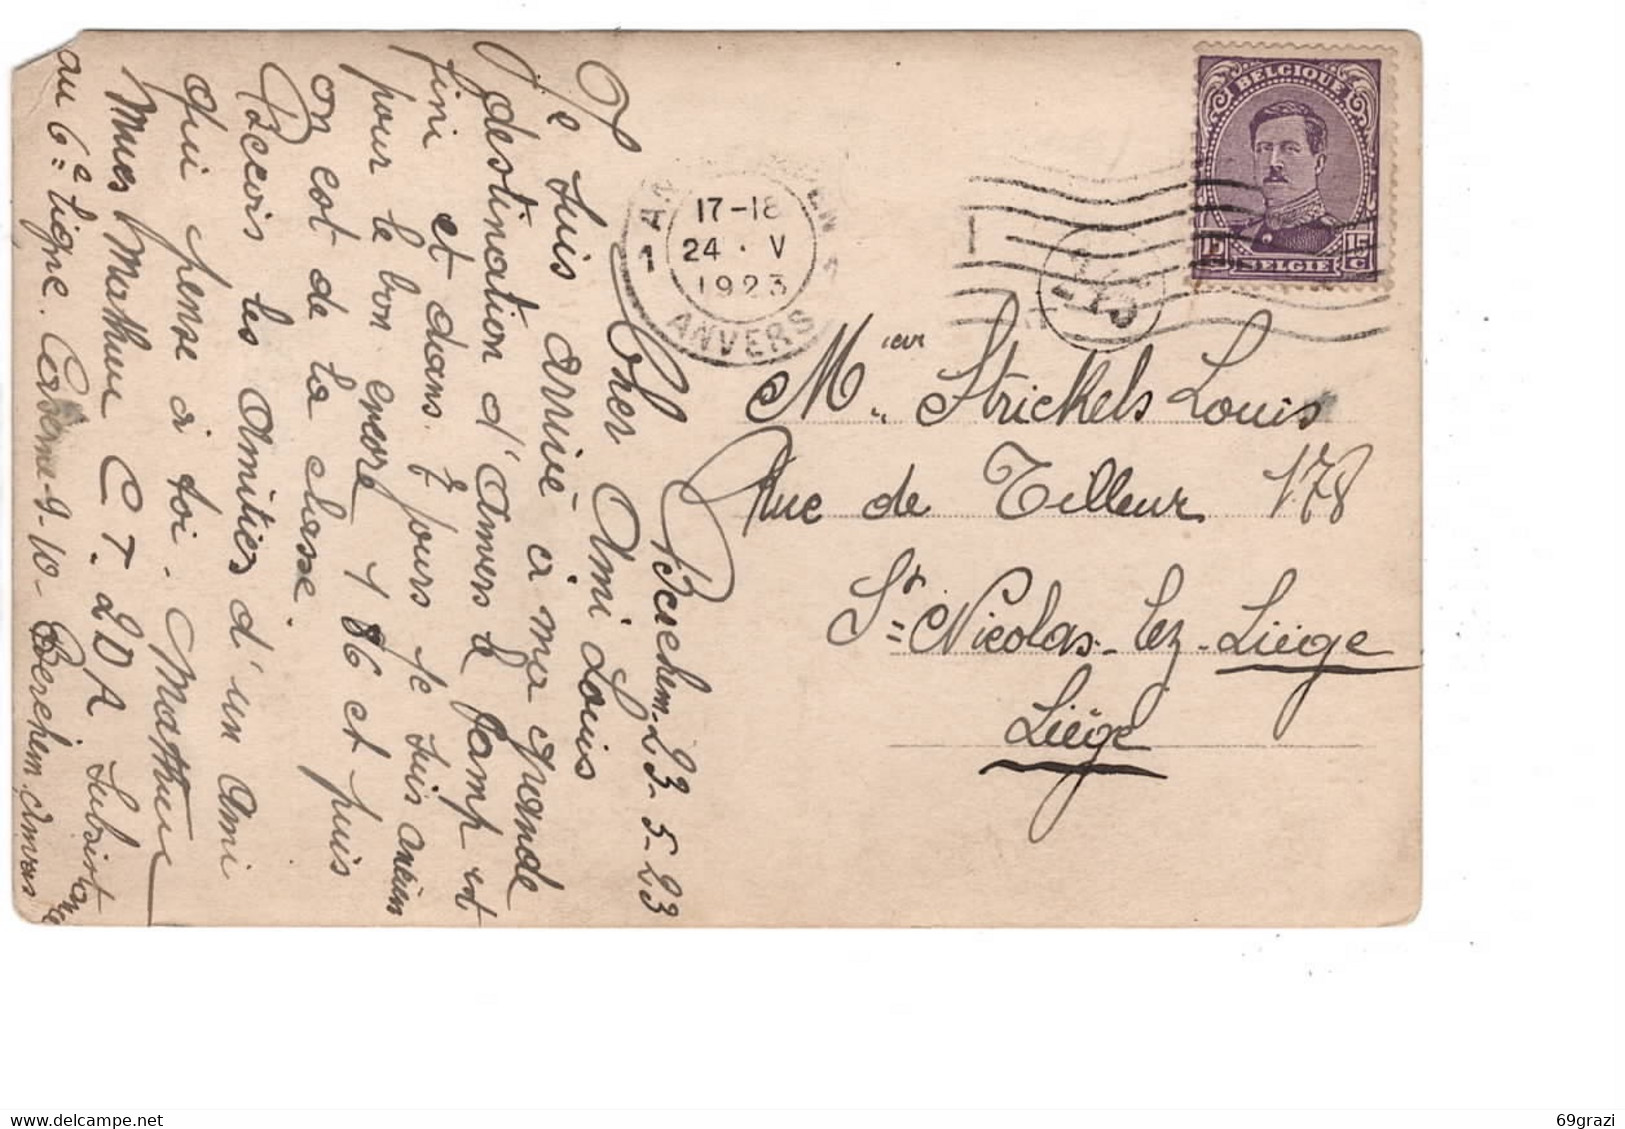 Berchem-23-5-23
Cher Ami Louis
Je suis arrivé a ma grande
destination d'Anvers le Camp est
fini et dans 7 jours je suis ancien
pour le bon encore 186 et puis
on est de la classe.
Recois les Amitiés d'un Ami
qui pense à toi. Mathieu
Mues Mathieu C.T. 2DA Subsistance
au 6e ligne. Caserne-9-10-Berchem.Anvers
17-18
24 · V
1923
1 ANVERS 1
BELGIQUE
15 C 15 C
BELGIE
Mr Strickels Louis
Rue de Tilleur 178
St Nicolas-lez-Liège
Liège
69grazi